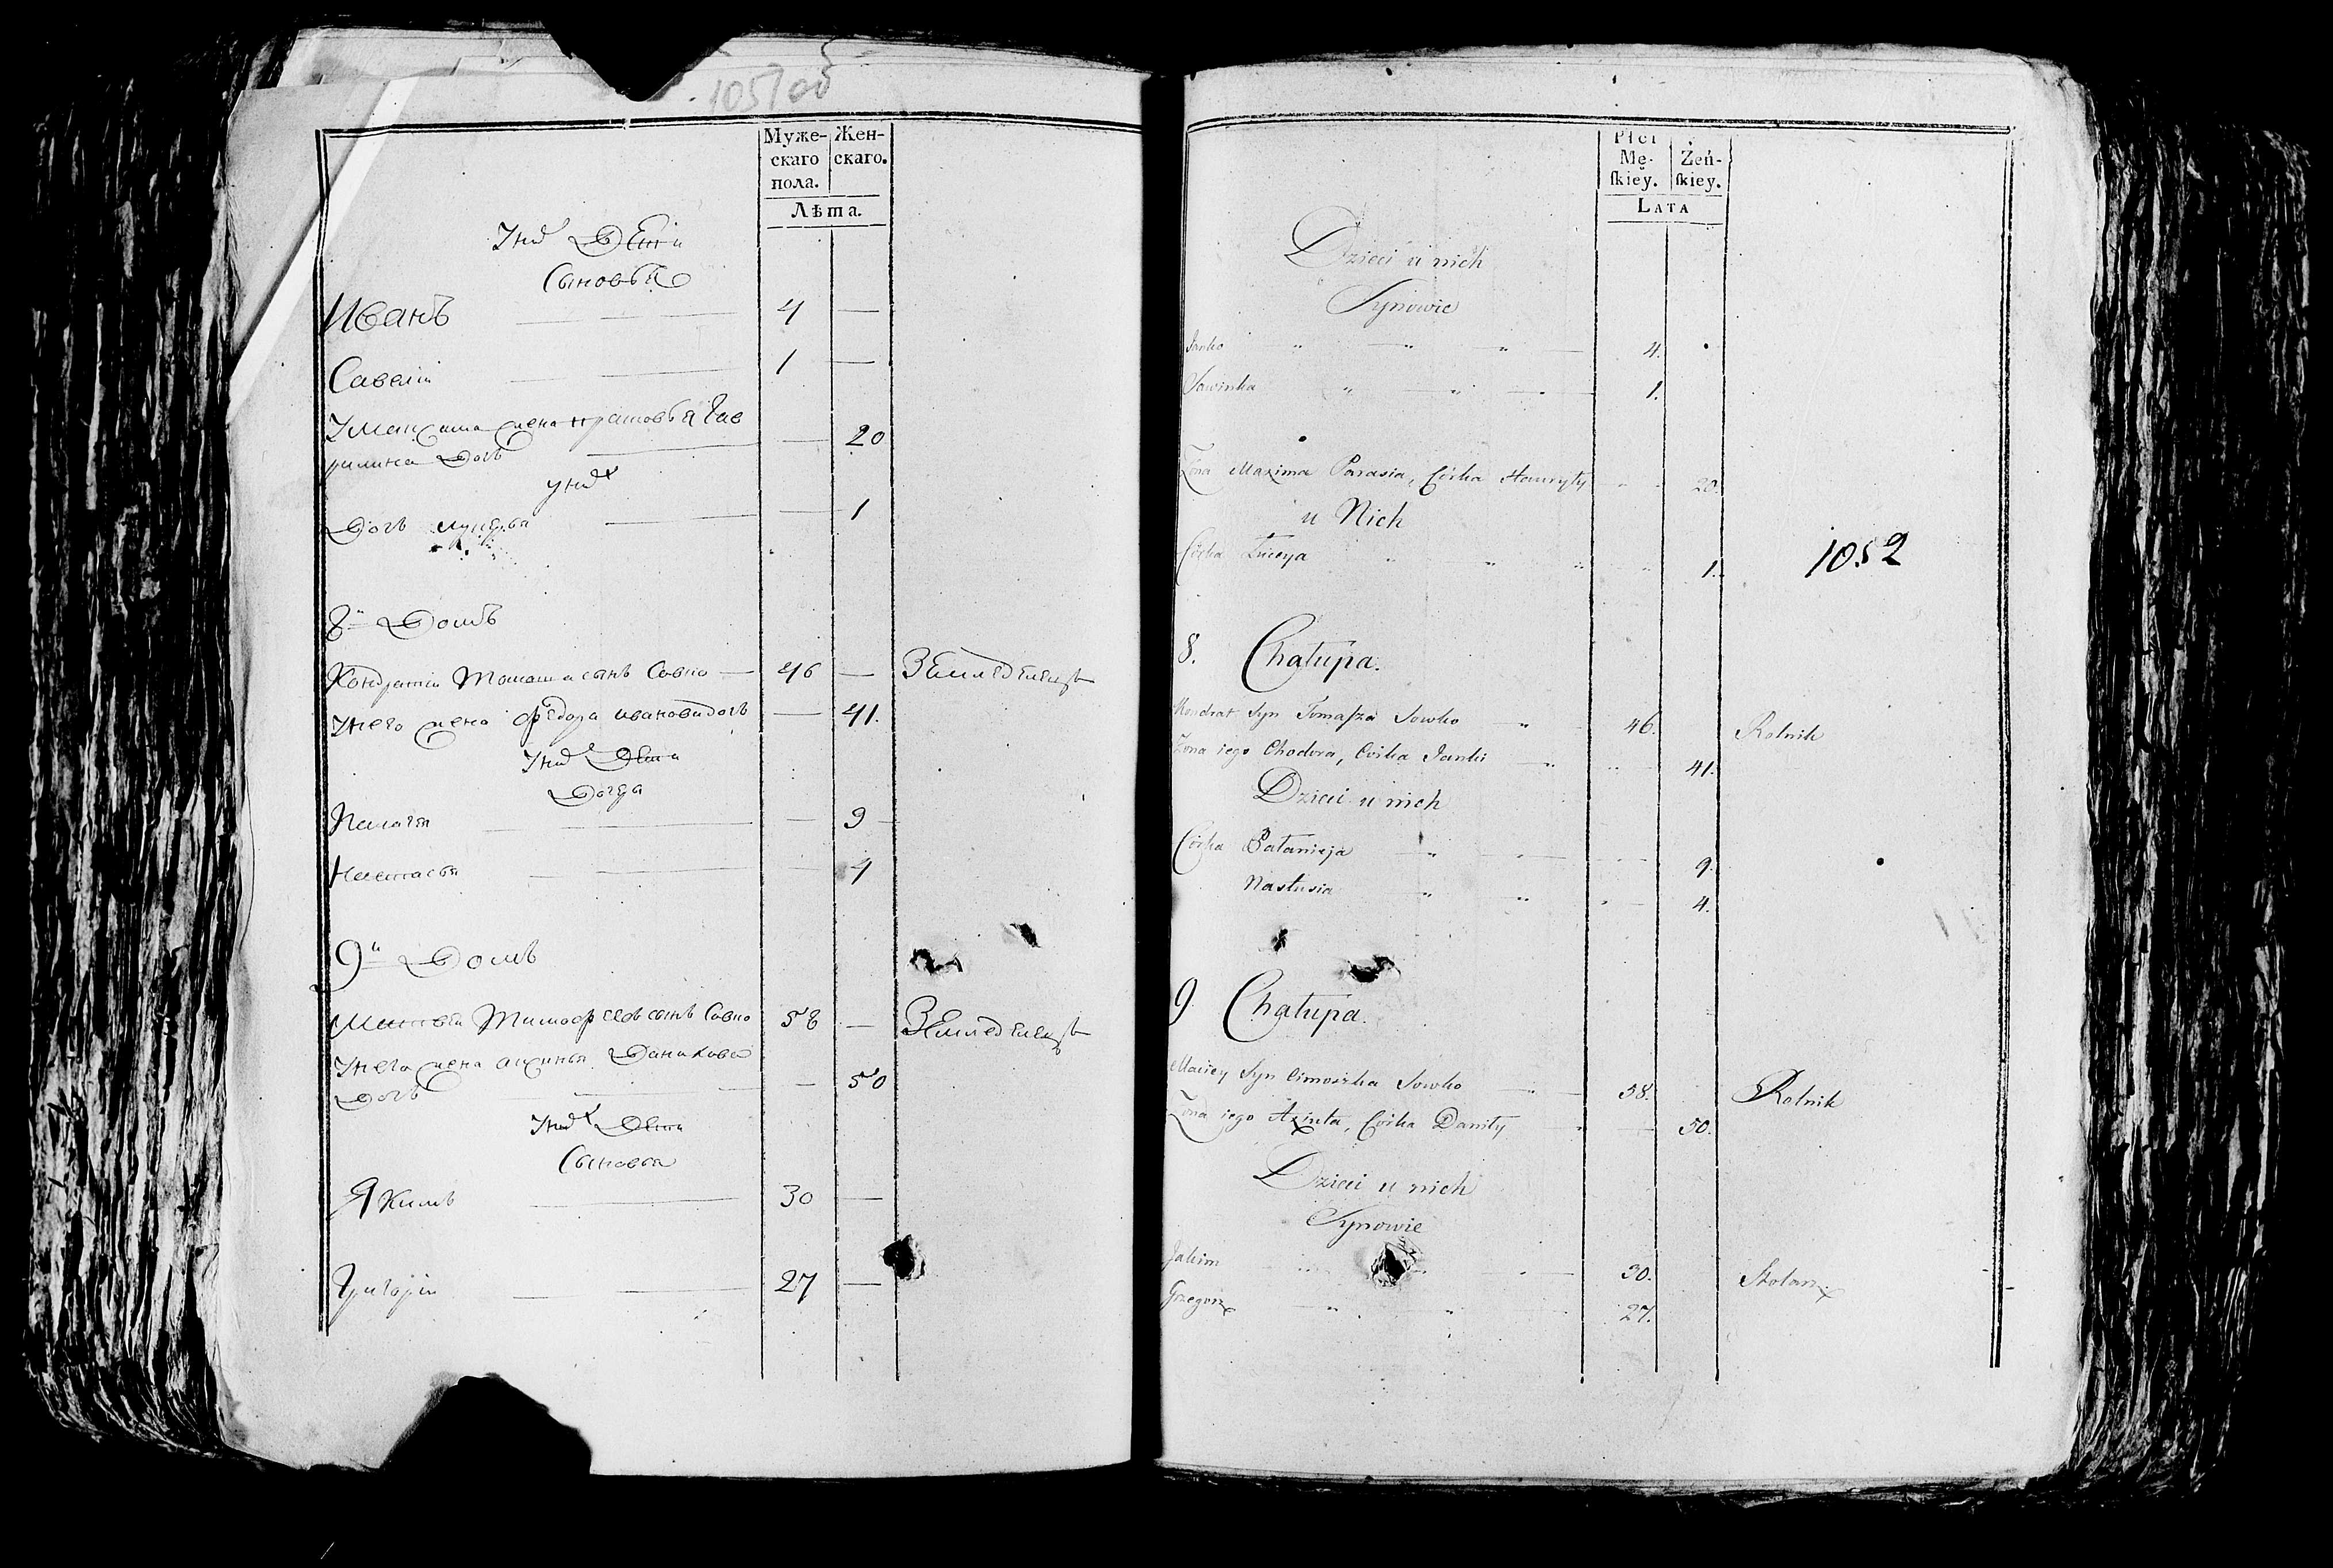 1051 об
Муже- Жен-
скаго скаго.
пола.
Лѣта.
У нихъ Дѣти
Сыновья
Иванъ 4 —
Савелій 1 —
У Максима жена Прасковья Гав
рилина Дочь — 20
У нихъ
Дочь Лукерья — 1
8й Домъ
Кондратій Томаша сынъ Савко — 46 — Земледѣлецъ
У него жена Федора Иванова дочь — 41.
У нихъ Дѣти
Дочери
Палагея — 9
Настасья 4
9й Домъ
Матвей Тимофеевъ сынъ Савко 58 — Земледѣлецъ
У него жена Аксинья Данилова
Дочь — 50
У нихъ Дѣти
Сыновья
Якимъ 30 —
Григорій 27 —
Płci
Mę- Żeń-
skiey. skiey.
Lata
Dzieci u nich
Synowie
Janko 4.
Sawinka 1.
Żona Maxima Parasia, Córka Hawryły 20.
u Nich
Córka Łucyja 1.
1052
8. Chałupa.
Kondrat Syn Tomasza Sowko 46. Rolnik
Żona iego Chodora, Córka Janki 41.
Dzieci u nich
Córka Pałanieja 9.
Nastusia 4.
9. Chałupa.
Maciey Syn Cimoszka Sowko 58. Rolnik
Żona iego Axinta, Córka Daniły 50.
Dzieci u nich
Synowie
Jakim 30. Stolarz
Grzegorz 27.